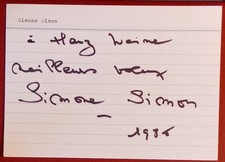 simone simon
à Hanz Weine
meilleurs voeux
Simone Simon
1986